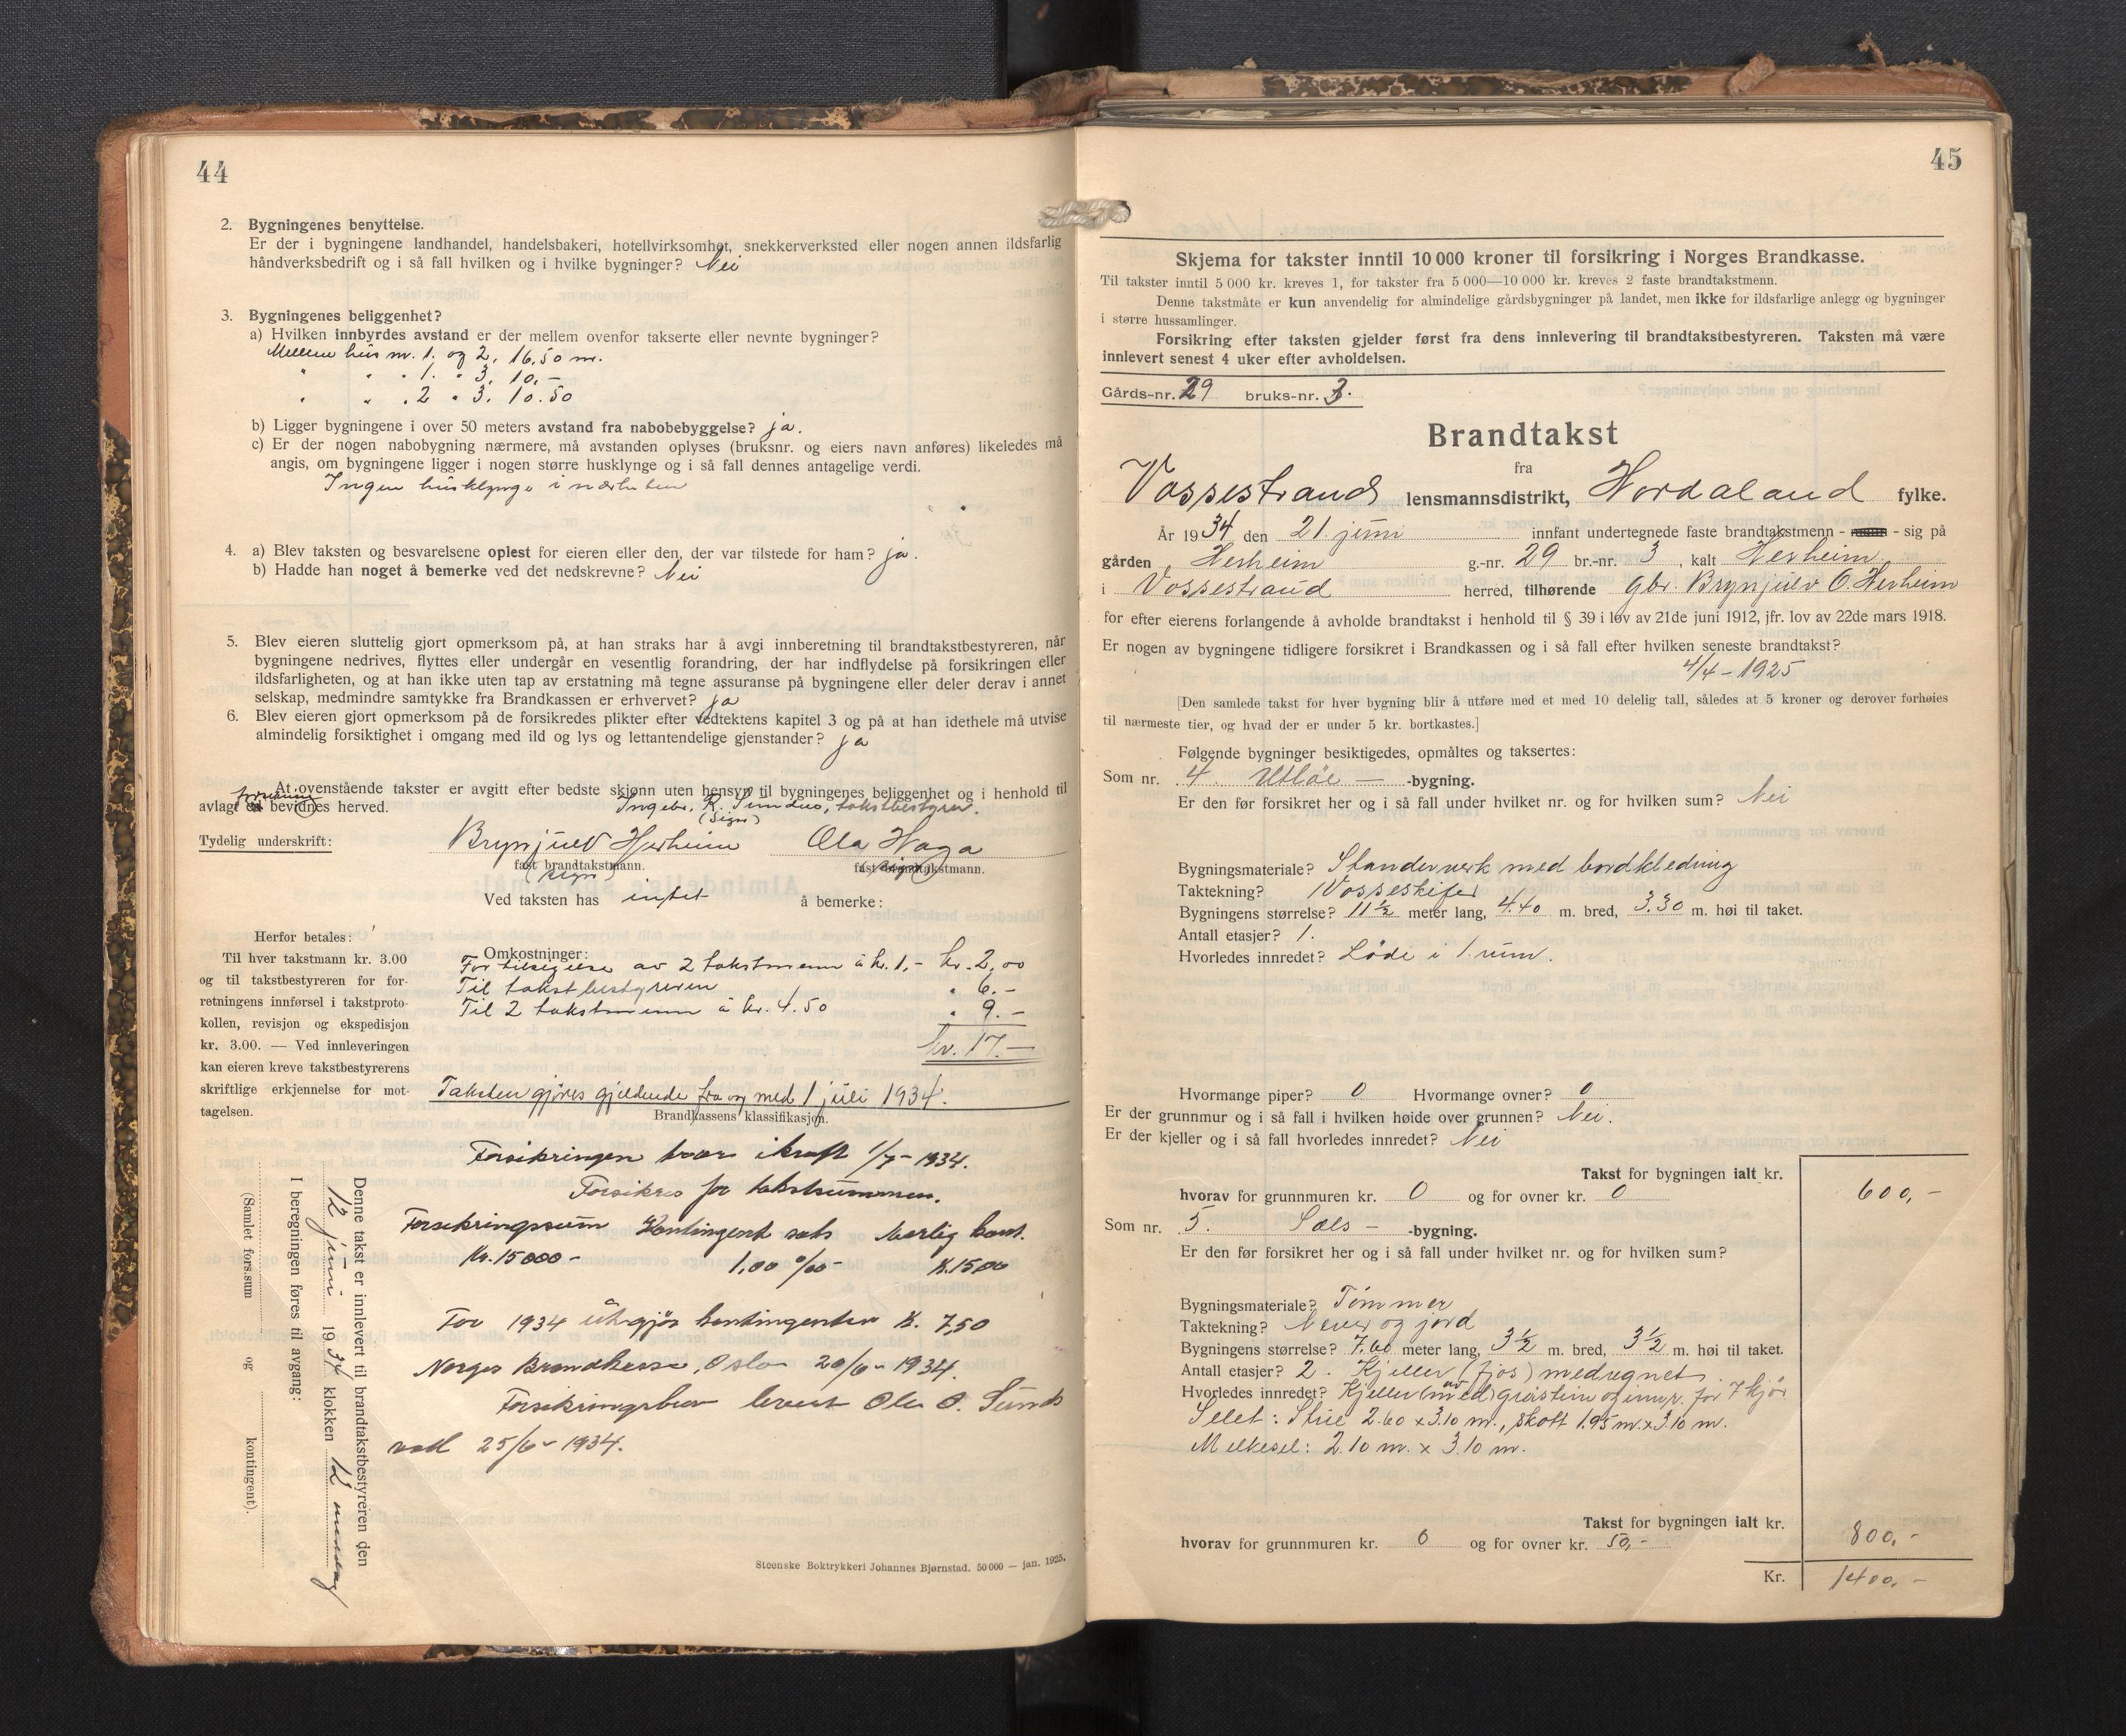 44
2. Bygningenes benyttelse.
Er der i bygningene landhandel, handelsbakeri, hotellvirksomhet, snekkerverksted eller nogen annen ildsfarlig
håndverksbedrift og i så fall hvilken og i hvilke bygninger? Nei
3. Bygningenes beliggenhet?
a) Hvilken innbyrdes avstand er der mellem ovenfor takserte eller nevnte bygninger?
Mellem hus nr. 1. og 2, 16,50 m.
" " " 1. " 3, 10,-
" " " 2 " 3. 10.50
b) Ligger bygningene i over 50 meters avstand fra nabobebyggelse? ja.
c) Er der nogen nabobygning nærmere, må avstanden oplyses (bruksnr. og eiers navn anføres) likeledes må
angis, om bygningene ligger i nogen større husklynge og i så fall dennes antagelige verdi.
Ingen husklynge i nærheten
4. a) Blev taksten og besvarelsene oplest for eieren eller den, der var tilstede for ham? ja.
b) Hadde han noget å bemerke ved det nedskrevne? Nei
5. Blev eieren sluttelig gjort opmerksom på, at han straks har å avgi innberetning til brandtakstbestyreren, når
bygningene nedrives, flyttes eller undergår en vesentlig forandring, der har indflydelse på forsikringen eller
ildsfarligheten, og at han ikke uten tap av erstatning må tegne assuranse på bygningene eller deler derav i annet
selskap, medmindre samtykke fra Brandkassen er erhvervet? ja
6. Blev eieren gjort opmerksom på de forsikredes plikter efter vedtektens kapitel 3 og på at han idethele må utvise
almindelig forsiktighet i omgang med ild og lys og lettantendelige gjenstander? ja
At ovenstående takster er avgitt efter bedste skjønn uten hensyn til bygningenes beliggenhet og i henhold til
avlagt ed bevidnes herved. Ingebr. K. takstbestyrer.
(Sign)
Tydelig underskrift: Brynjulv Herheim Ola Haga
fast brandtakstmann. fast brandtakstmann.
(sign) (sign)
Ved taksten has intet å bemerke:
Herfor betales:
Til hver takstmann kr. 3.00
og til takstbestyreren for for-
retningens innførsel i takstproto-
kollen, revisjon og ekspedisjon
kr. 3.00. — Ved innleveringen
kan eieren kreve takstbestyrerens
skriftlige erkjennelse for mot-
tagelsen.
Omkostninger:
For tilsigelse av 2 takstmenn à kr. 1,- kr. 2,00
Til takstbestyreren " 6.-
Til 2 takstmenn à kr. 4.50 " 9.-
kr. 17.-
Taksten gjøres gjeldende fra og med 1 juli 1934.
Brandkassens klassifikasjon.
Forsikringen trær i kraft 1/7 - 1934.
Forsikres for takstsummen.
Forsikringssum Kontingent sats Aarlig kont.
Kr. 15000 - 1,00 ‰ - K. 15 00
For 1934 utgjør kontingenten K. 7,50
Norges Brandkasse, Oslo 20/6 - 1934.
Forsikringsbrev levert Ole O. Sunds
vall 25/6 - 1934.
Denne takst er innlevert til brandtakstbestyreren den
12 juni 1934 klokken 12 middag
I beregningen føres til avgang:
(Samlet fors.sum og kontingent).
Steenske Boktrykkeri Johannes Bjørnstad. 50 000 — jan. 1925.
45
Skjema for takster inntil 10 000 kroner til forsikring i Norges Brandkasse.
Til takster inntil 5 000 kr. kreves 1, for takster fra 5 000—10 000 kr. kreves 2 faste brandtakstmenn.
Denne takstmåte er kun anvendelig for almindelige gårdsbygninger på landet, men ikke for ildsfarlige anlegg og bygninger
i større hussamlinger.
Forsikring efter taksten gjelder først fra dens innlevering til brandtakstbestyreren. Taksten må være
innlevert senest 4 uker efter avholdelsen.
Gårds-nr. 29 bruks-nr. 3.
Brandtakst
fra
Vossestrand lensmannsdistrikt, Hordaland fylke.
År 1934 den 21. juni innfant undertegnede faste brandtakstmenn - - sig på
gården Herheim g.-nr. 29 br.-nr. 3, kalt Herheim
i Vossestrand herred, tilhørende gbr. Brynjulv O. Herheim
for efter eierens forlangende å avholde brandtakst i henhold til § 39 i lov av 21de juni 1912, jfr. lov av 22de mars 1918.
Er nogen av bygningene tidligere forsikret i Brandkassen og i så fall efter hvilken seneste brandtakst?
4/4 - 1925
[Den samlede takst for hver bygning blir å utføre med et med 10 delelig tall, således at 5 kroner og derover forhøies
til nærmeste tier, og hvad der er under 5 kr. bortkastes.]
Følgende bygninger besiktigedes, opmåltes og taksertes:
Som nr. 4 Utløe — -bygning.
Er den før forsikret her og i så fall under hvilket nr. og for hvilken sum? Nei
Bygningsmateriale? Standerverk med bordkledning
Taktekning? Vosseskifer
Bygningens størrelse? 11 ½ meter lang, 4.40 m. bred, 3.30 m. høi til taket.
Antall etasjer? 1.
Hvorledes innredet? Løde i 1 rum.
Hvormange piper? 0 Hvormange ovner? 0
Er der grunnmur og i så fall i hvilken høide over grunnen? Nei.
Er der kjeller og i så fall hvorledes innredet? Nei
Takst for bygningen ialt kr.
hvorav for grunnmuren kr. 0 og for ovner kr. 0 600,-
Som nr. 5. Sæls - -bygning.
Er den før forsikret her og i så fall under hvilket nr. og for hvilken sum?
Bygningsmateriale? Tømmer
Taktekning? Never og jord
Bygningens størrelse? 7,60 meter lang, 3 ½ m. bred, 3 ½ m. høi til taket.
Antall etasjer? 2. Kjeller (fjøs) medregnet.
Hvorledes innredet? Kjeller (av) gråstein og innr. for 7 kjør
Selet: Stue 2.60 x 3.10 m., skott 1.95 m. x 3.10 m.
Melkesel: 2.10 m. x 3.10 m.
Takst for bygningen ialt kr.
hvorav for grunnmuren kr. 0 og for ovner kr. 50,- 800,-
Kr. 1400,-